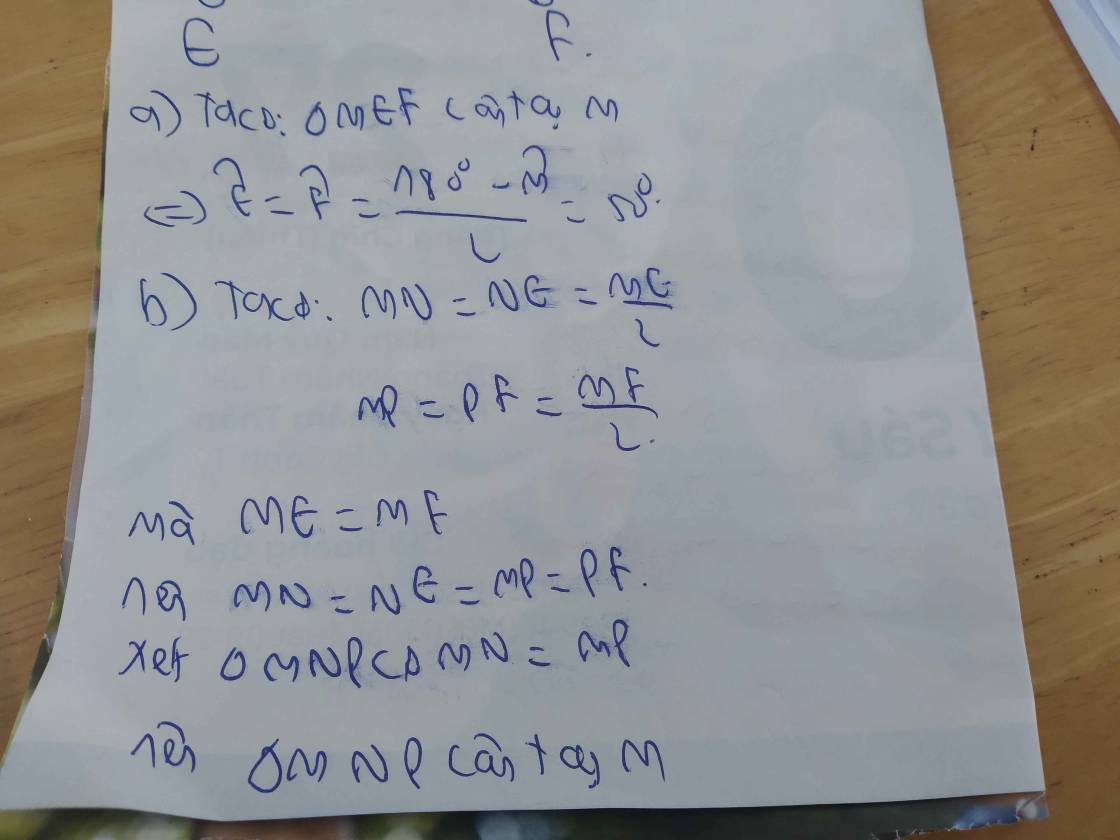 E F.
a) Ta có: ΔMEF cân tại M
<=> Ê = F̂ = (180° - M̂)/2 = 50°.
b) Ta có: MN = NE = ME/2
MP = PF = MF/2.
mà ME = MF
nên MN = NE = MP = PF.
xét ΔMNP có MN = MP
nên ΔMNP cân tại M
Sáu